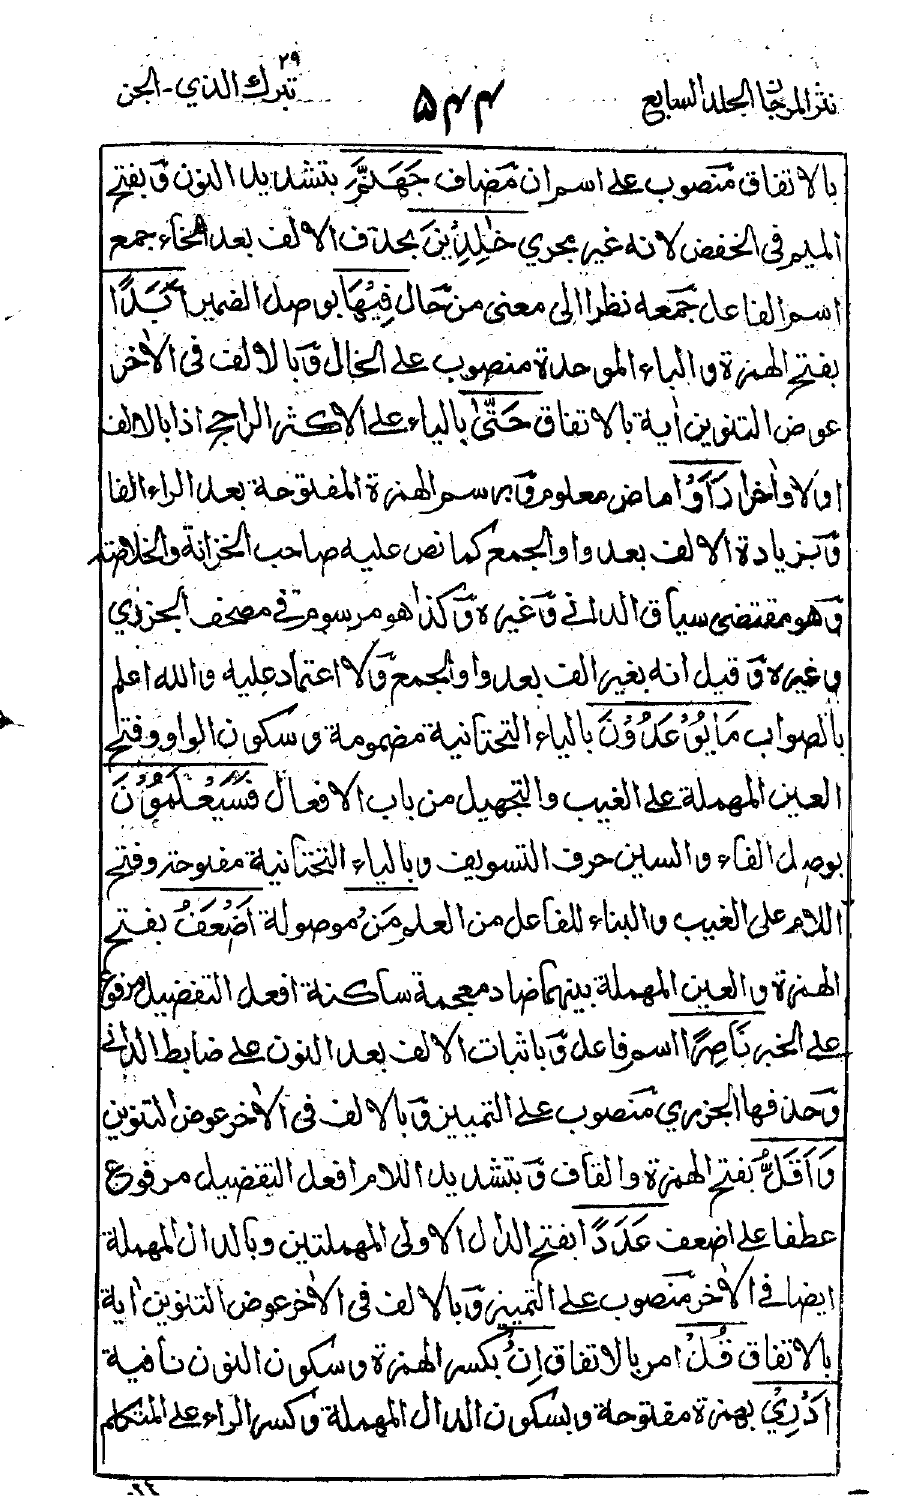 نثر المرجان الجلد السابع
۵۴۴
تبرك الذي - الجن
۲۹
بالاتفاق منصوب على اسم ان مضاف جَهَنَّمَ بتشديد النون وبفتح
الميم في الخفض لانه غير مجرى خٰلِدِيْنَ بحذف الالف بعد الخاء جمع
اسم الفاعل جمعه نظرا الى معنى من حال فِيْهَا بوصل الضمير اَبَدًا
بفتح الهمزة والباء الموحدة منصوب على الحال وبالالف في الاخر
عوض التنوين اية بالاتفاق حَتّٰى بالياء على الاكثر الراجح اذا بالالف
اولا واخرا رَاَوْا ماض معلوم وبرسم الهمزة المفتوحة بعد الراء الفا
وبزيادة الالف بعد واو الجمع كما نص عليه صاحب الخزانة والخلاصة
وهو مقتضى سياق الداني وغيره وكذا هو مرسوم في مصحف الجزري
وغيره وقيل انه بغير الف بعد واو الجمع ولا اعتماد عليه والله اعلم
بالصواب مَا يُوْعَدُوْنَ بالياء التحتانية مضمومة وسكون الواو وفتح
العين المهملة على الغيب والتجهيل من باب الافعال فَسَيَعْلَمُوْنَ
بوصل الفاء والسين حرف التسويف وبالياء التحتانية مفتوحة وفتح
اللام على الغيب والبناء للفاعل من العلم مَنْ موصولة اَضْعَفُ بفتح
الهمزة والعين المهملة بينهما ضاد معجمة ساكنة افعل التفضيل مرفوع
على الخبر نَاصِرًا اسم فاعل وباثبات الالف بعد النون على ضابط الداني
وحذفها الجزري منصوب على التمييز وبالالف في الاخر عوض التنوين
وَاَقَلُّ بفتح الهمزة والقاف وبتشديد اللام افعل التفضيل مرفوع
عطفا على اضعف عَدَدًا بفتح الدال الاولى المهملتين وبالدال المهملة
ايضا في الاخر منصوب على التمييز وبالالف في الاخر عوض التنوين اية
بالاتفاق قُلْ امر بالاتفاق اِنْ بكسر الهمزة وسكون النون نافية
اَدْرِيْ بهمزة مفتوحة وبسكون الدال المهملة وكسر الراء على المتكلم